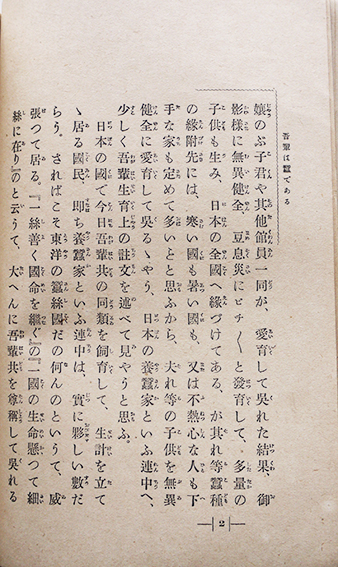 吾輩は蠶である
孃のぶ子君や其他館員一同が、愛育して吳れた結果、御
影樣に無異健全、豆息災にピチ〱と發育して、多量の
子供も生み、日本の全國へ緣づけてある、が其れ等蠶種
の緣附先には、寒い國も暑い國も、又は不熱心な人も下
手な家も定めて多いとと思ふから、夫れ等の子供を無異
健全に愛育して吳るゝやう、日本の養蠶家といふ連中へ、
少しく吾輩生育上の註文を述べて見やうと思ふ。
日本の國で今日吾輩共の同類を飼育して、生計を立て
ゝ居る國民、卽ち養蠶家といふ連中は、實に夥しい數だ
らう。さればこそ東洋の蠶絲國だの何んのというて、威
張つて居る。『一絲善く國命を繼ぐ』の『一國の生命懸つて細
絲に在り』のと云うて、大へんに吾輩共を尊稱して吳れる
2